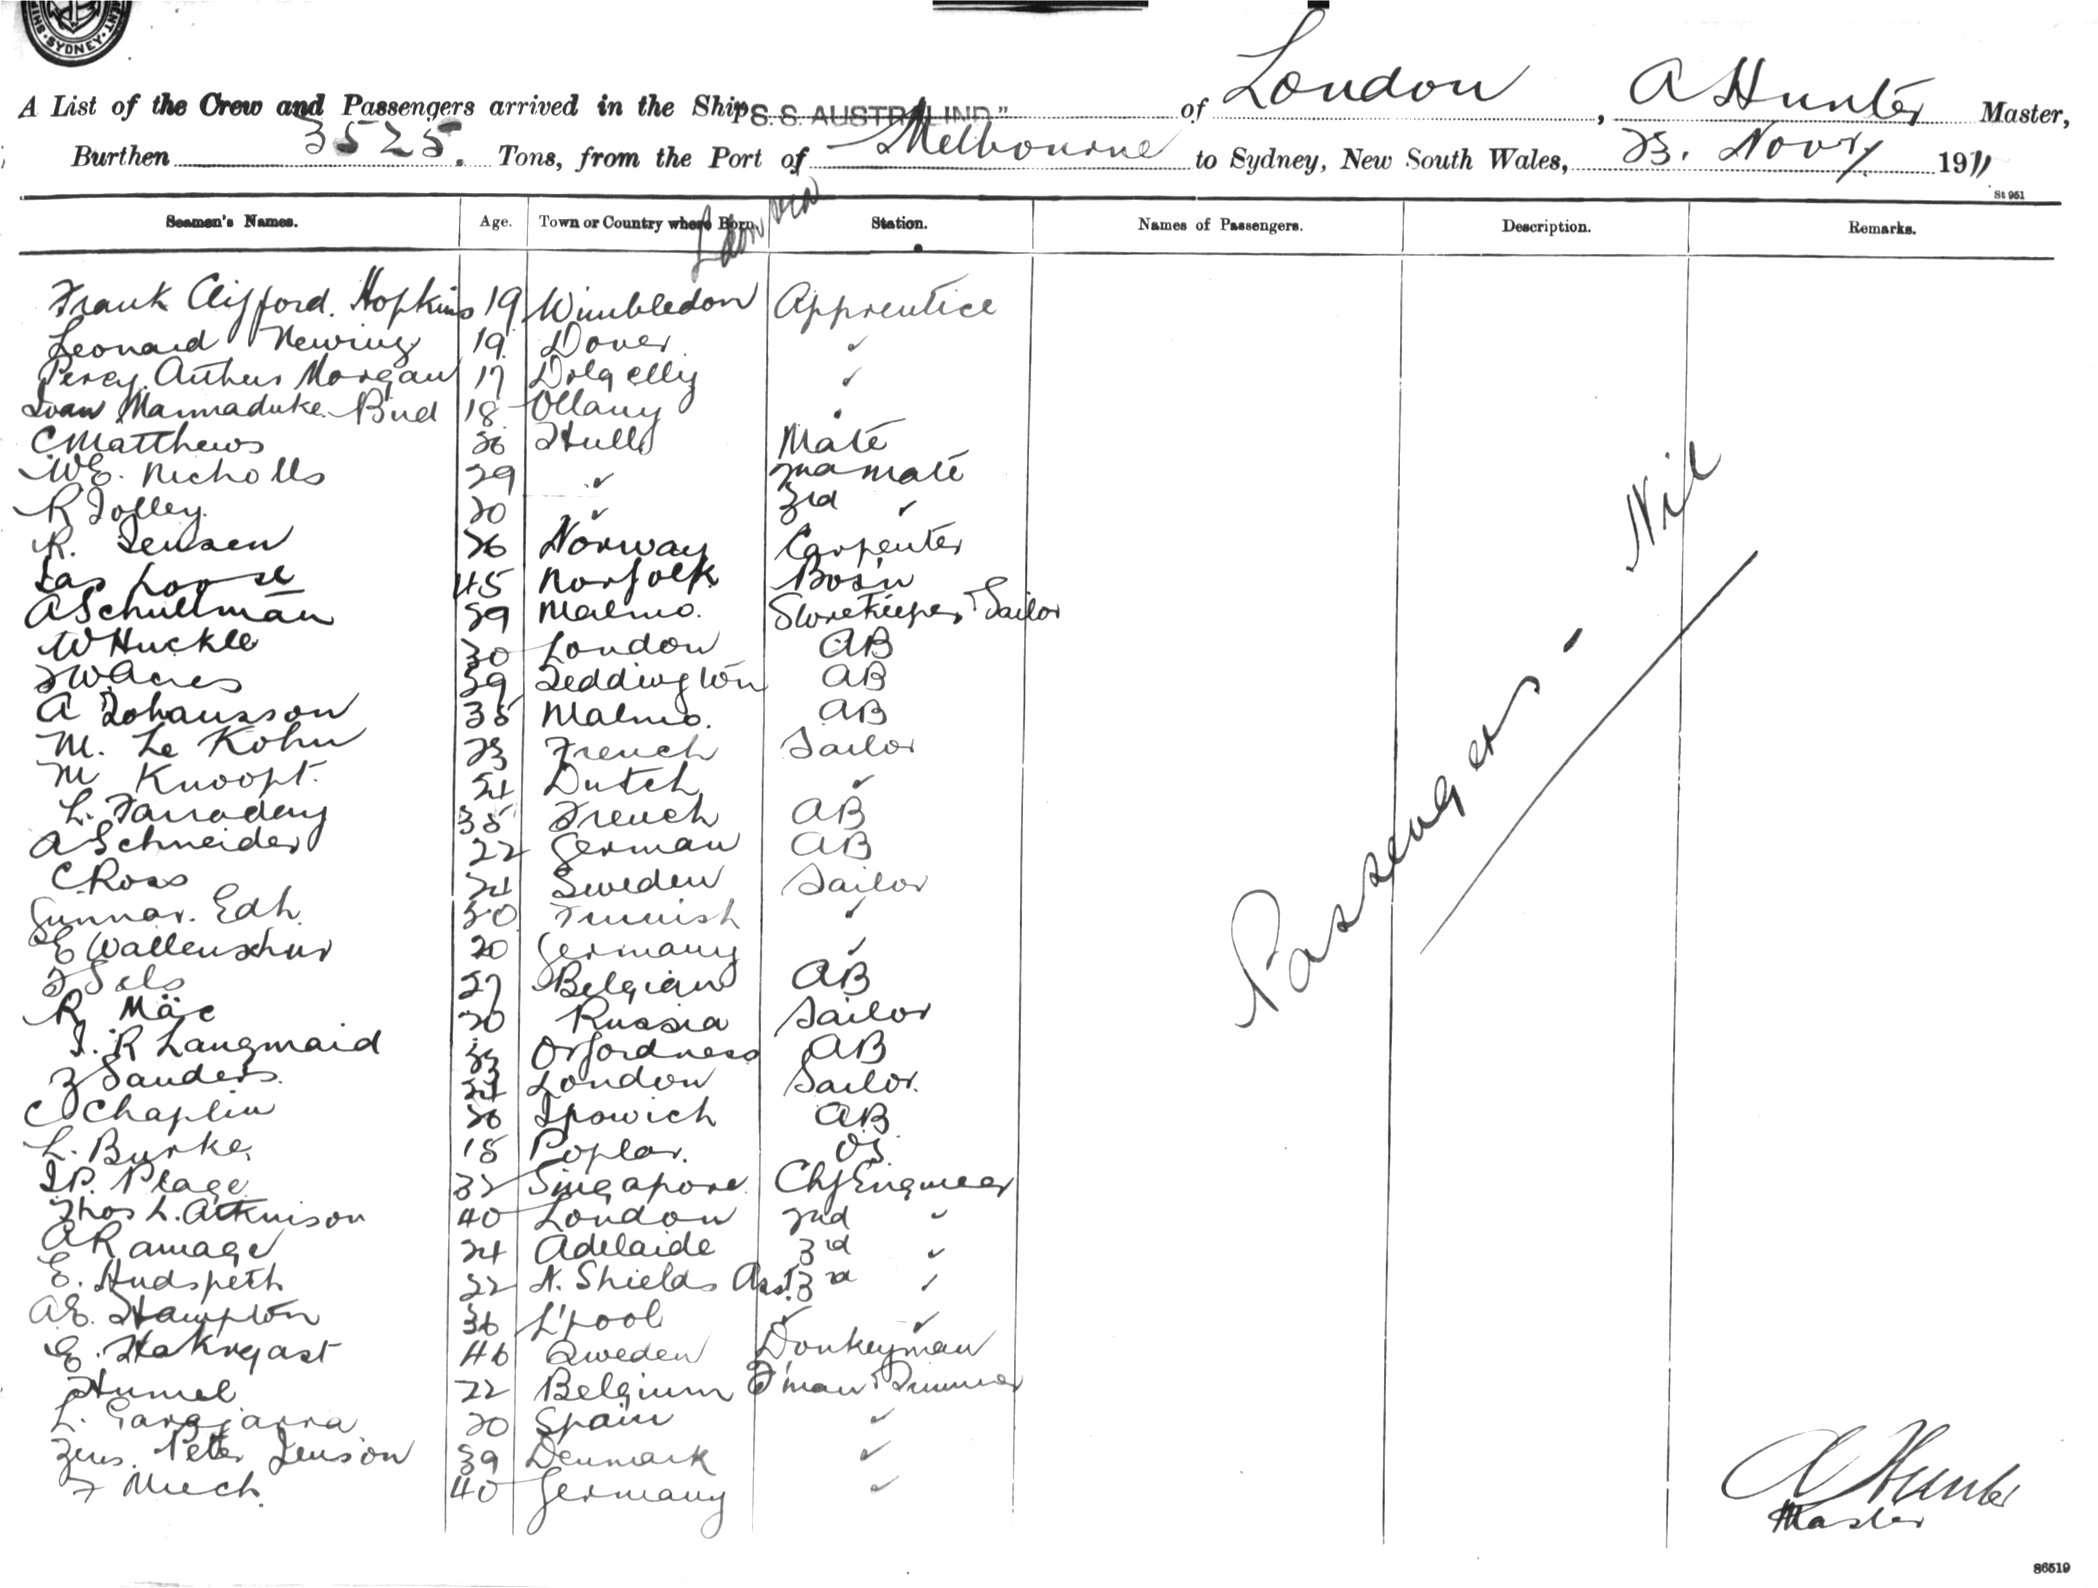 SYDNEY
A List of the Crew and Passengers arrived in the Ship S. S. AUSTRALIND" of London, A Hunter Master,
Burthen 3525. Tons, from the Port of Melbourne to Sydney, New South Wales, 23. Novr 1911
St 951
Seamen's Names. Age. Town or Country where Born. Station. Names of Passengers. Description. Remarks.
Frank Clifford. Hopkins 19 Wimbledon Apprentice
Leonard Newing 19 Dover ✓
Percy Arthur Morgan 17 Dolgelly ✓
Ivan Marmaduke Bird 18
C Matthews Hull Mate
W E. Nicholls 29 ✓ 2nd Mate
R Jolley 20 ✓ 3rd ✓
R. Jensen 26 Norway Carpenter
Jas Loose 45 Norfolk Bos'n
A Schultman 39 Malmo. Storekeeper & Sailor
W Huckle 30 London AB
F W Acres 39 Teddington AB
A Johansson 35 Malmo. AB
M. Le Kohn 23 French Sailor
M Knoopt. 21 Dutch ✓
L. Farradeny 35 French AB
A Schneider 22 German AB
C Ross 24 Sweden Sailor
Gunnar. Edh. 30 Finnish ✓
E 20 Germany ✓
F Sels 27 Belgian AB
R Mäe 20 Russia Sailor
J. R Langmaid 33 Orfordness AB
F Sanders. 21 London Sailor.
C Chaplin 26 Ipswich AB
L. Burke 18 Poplar. OS.
J.P. Plage 32 Singapore Chf Engineer
Thos L. Atkinson 40 London 2nd ✓
A Ramage 24 Adelaide 3rd ✓
E. Hudspeth 22 N. Shields Asst 3rd ✓
A E. Hampton 36 L'pool ✓ ✓
E. Hakvgast 46 Sweden Donkeyman
Humel 22 Belgium F'man & Trimmer
L. Garajarra 20 Spain ✓
Jens. Peter Jenson 39 Denmark ✓
F Much. 40 Germany ✓
Passengers - Nil
A Hunter
Master
86519